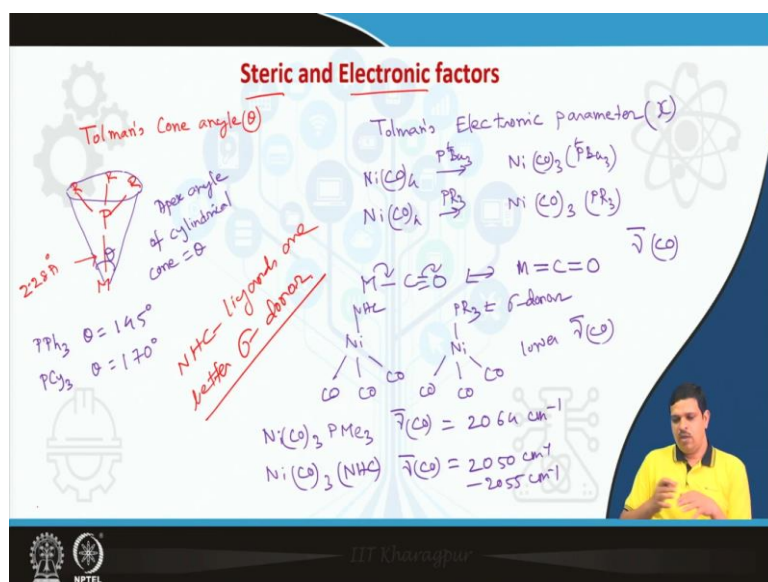 Steric and Electronic factors
Tolman's Cone angle (θ)
R R R
P
M
θ
2.28 Å
Apex angle
of cylindrical
cone = θ
PPh₃ θ = 145°
PCy₃ θ = 170°
NHC- ligands are
better σ- donar
Tolman's Electronic parameter (χ)
Ni(CO)₄ —PᵗBu₃→ Ni(CO)₃(PᵗBu₃)
Ni(CO)₄ —PR₃→ Ni(CO)₃(PR₃)
ν̄(CO)
M–C≡O ↔ M=C=O
NHC
Ni
CO CO CO
PR₃ ± σ-donar
Ni
CO CO CO
lower ν̄(CO)
Ni(CO)₃ PMe₃ ν̄(CO) = 2064 cm⁻¹
Ni(CO)₃(NHC) ν̄(CO) = 2050 cm⁻¹
– 2055 cm⁻¹
IIT Kharagpur
NPTEL